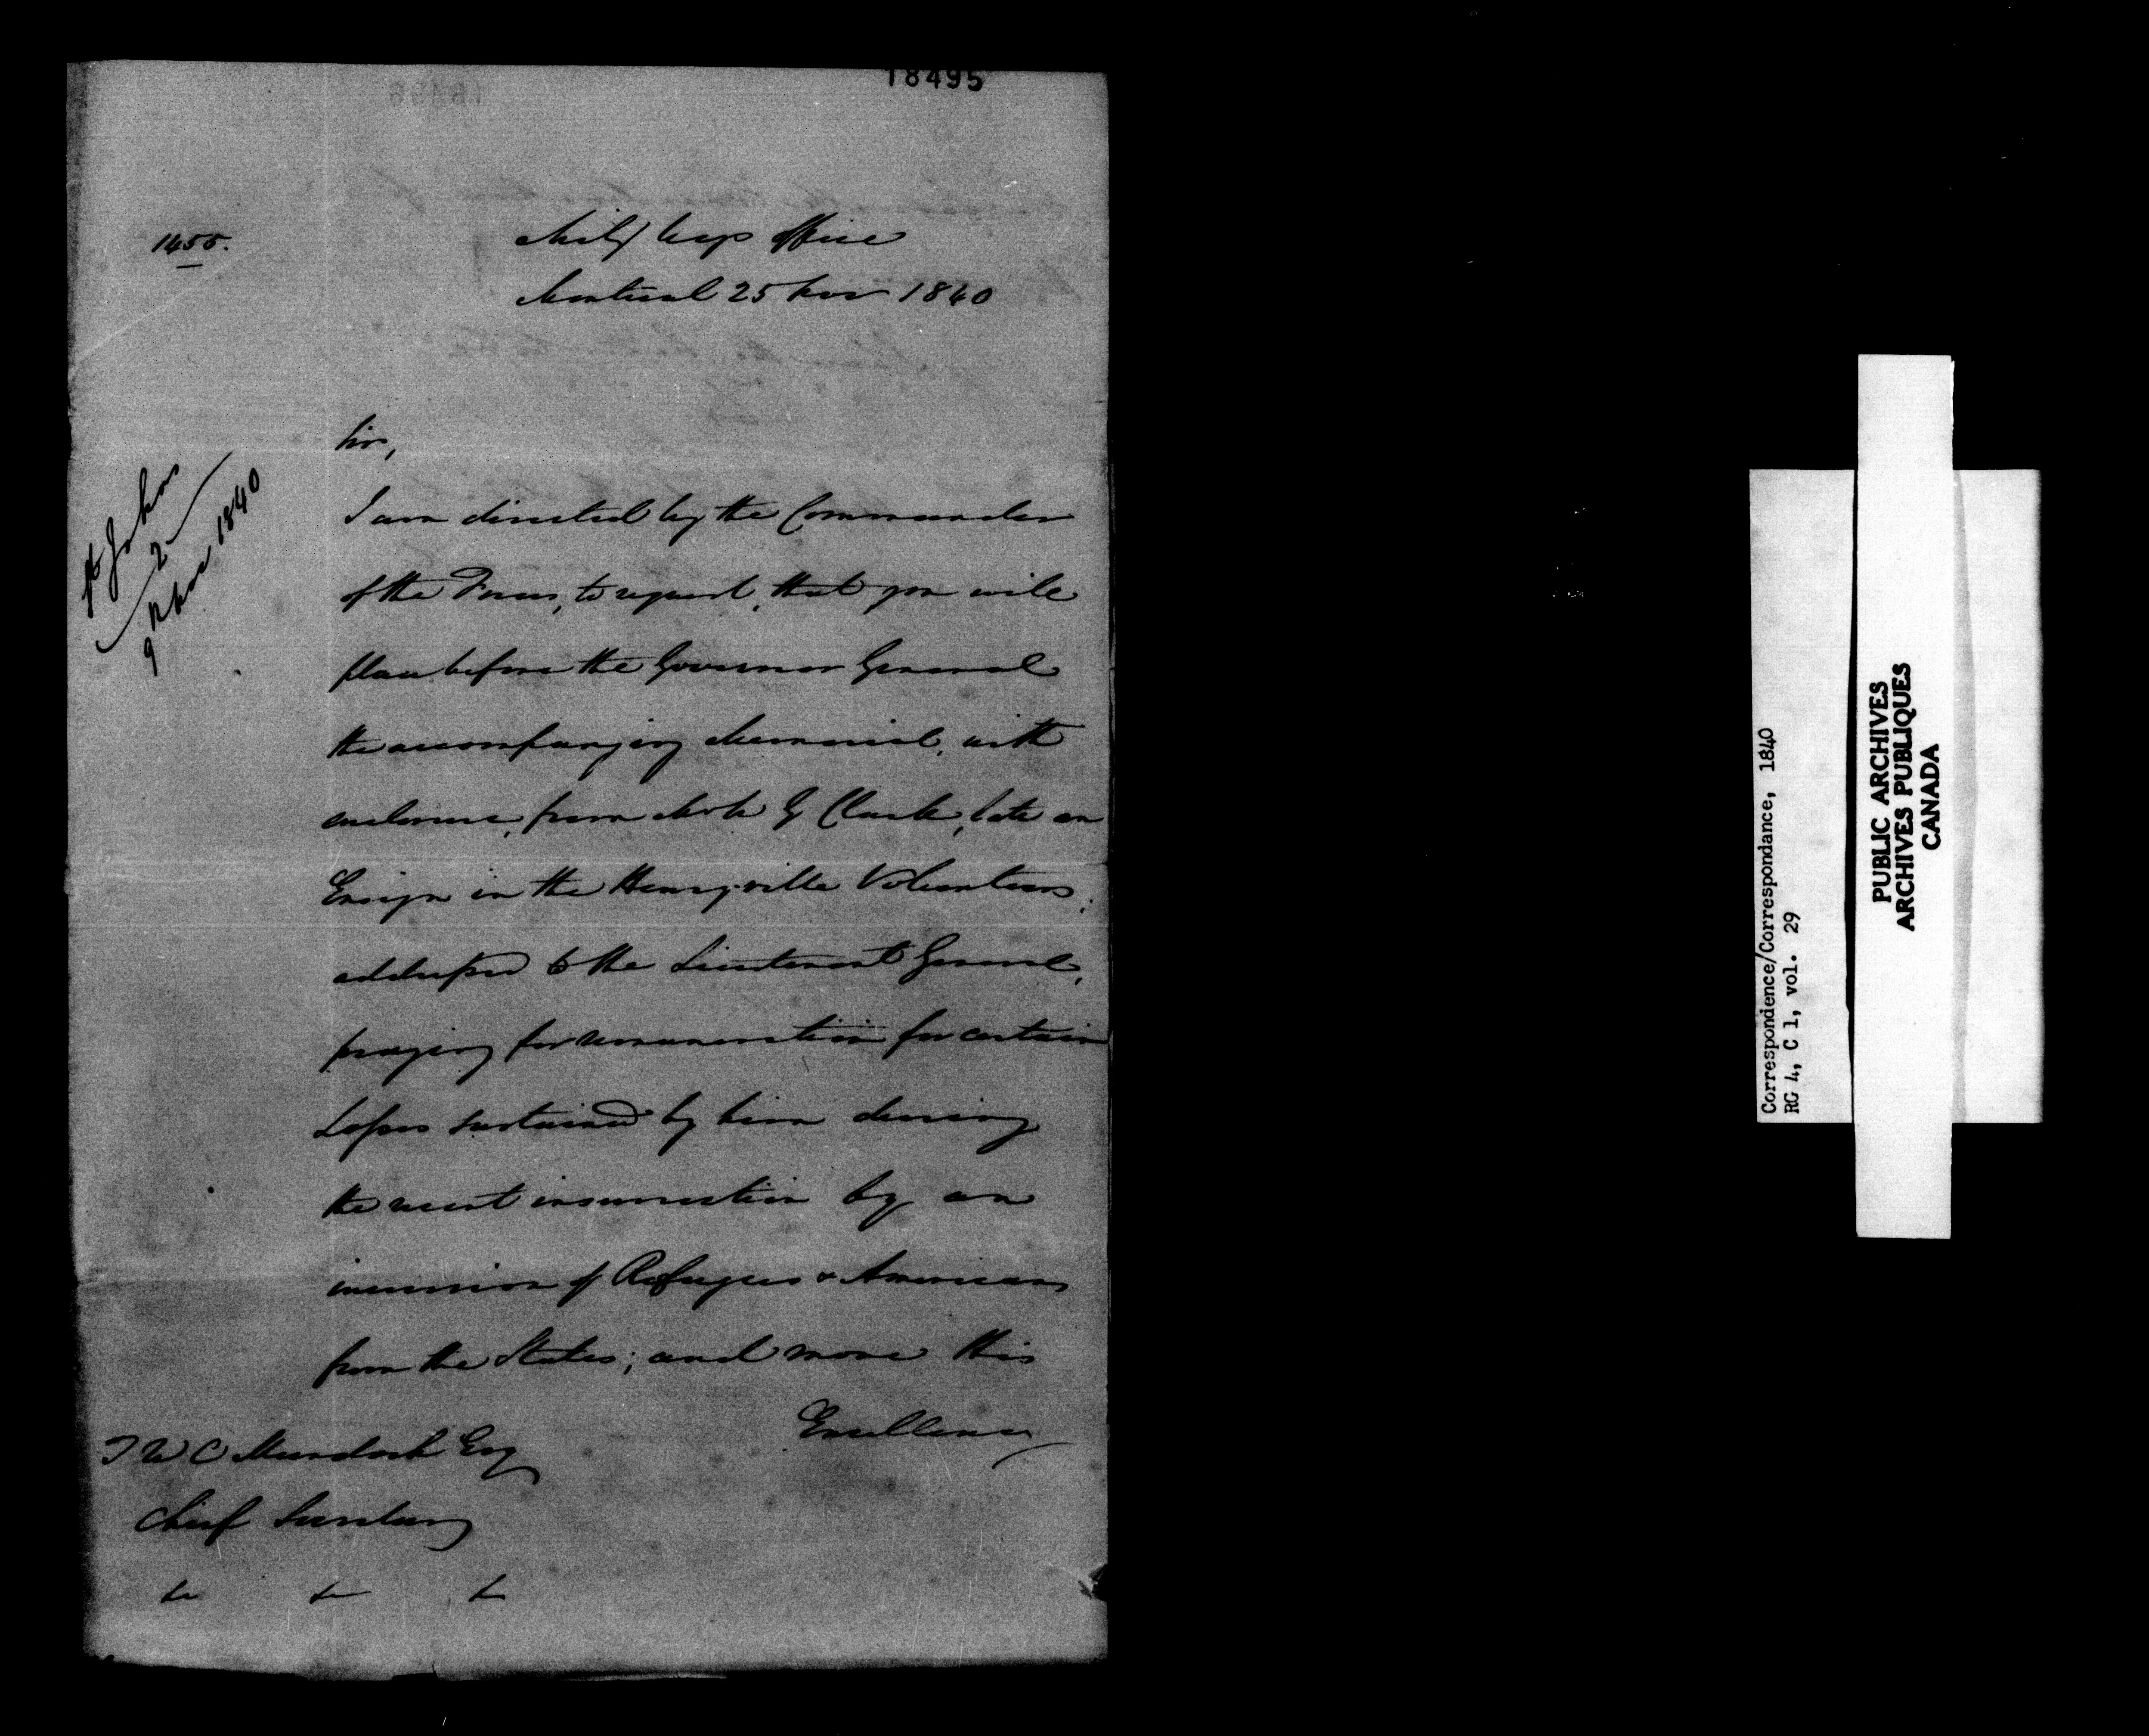 18495
1455.
Mily Secys Office
Montreal 25 Nov 1840
St Johns
2
9 Nov 1840
Sir,
I am directed by the Commander
of the Forces, to request, that you will
place before the Governor General
the accompanying Memorial, with
enclosure, from G Clark, late an
Ensign in the Henryville Volunteers,
addressed to the Lieutenant General,
praying for remuneration for certain
Losses sustained by him during
the recent insurrection by an
incursion of Refugees & Americans
from the States; and move His
Excellency
T W C Murdoch Esq
Chief Secretary
&c &c &c
Correspondence/Correspondance, 1840
RG 4, C 1, vol. 29
PUBLIC ARCHIVES
ARCHIVES PUBLIQUES
CANADA